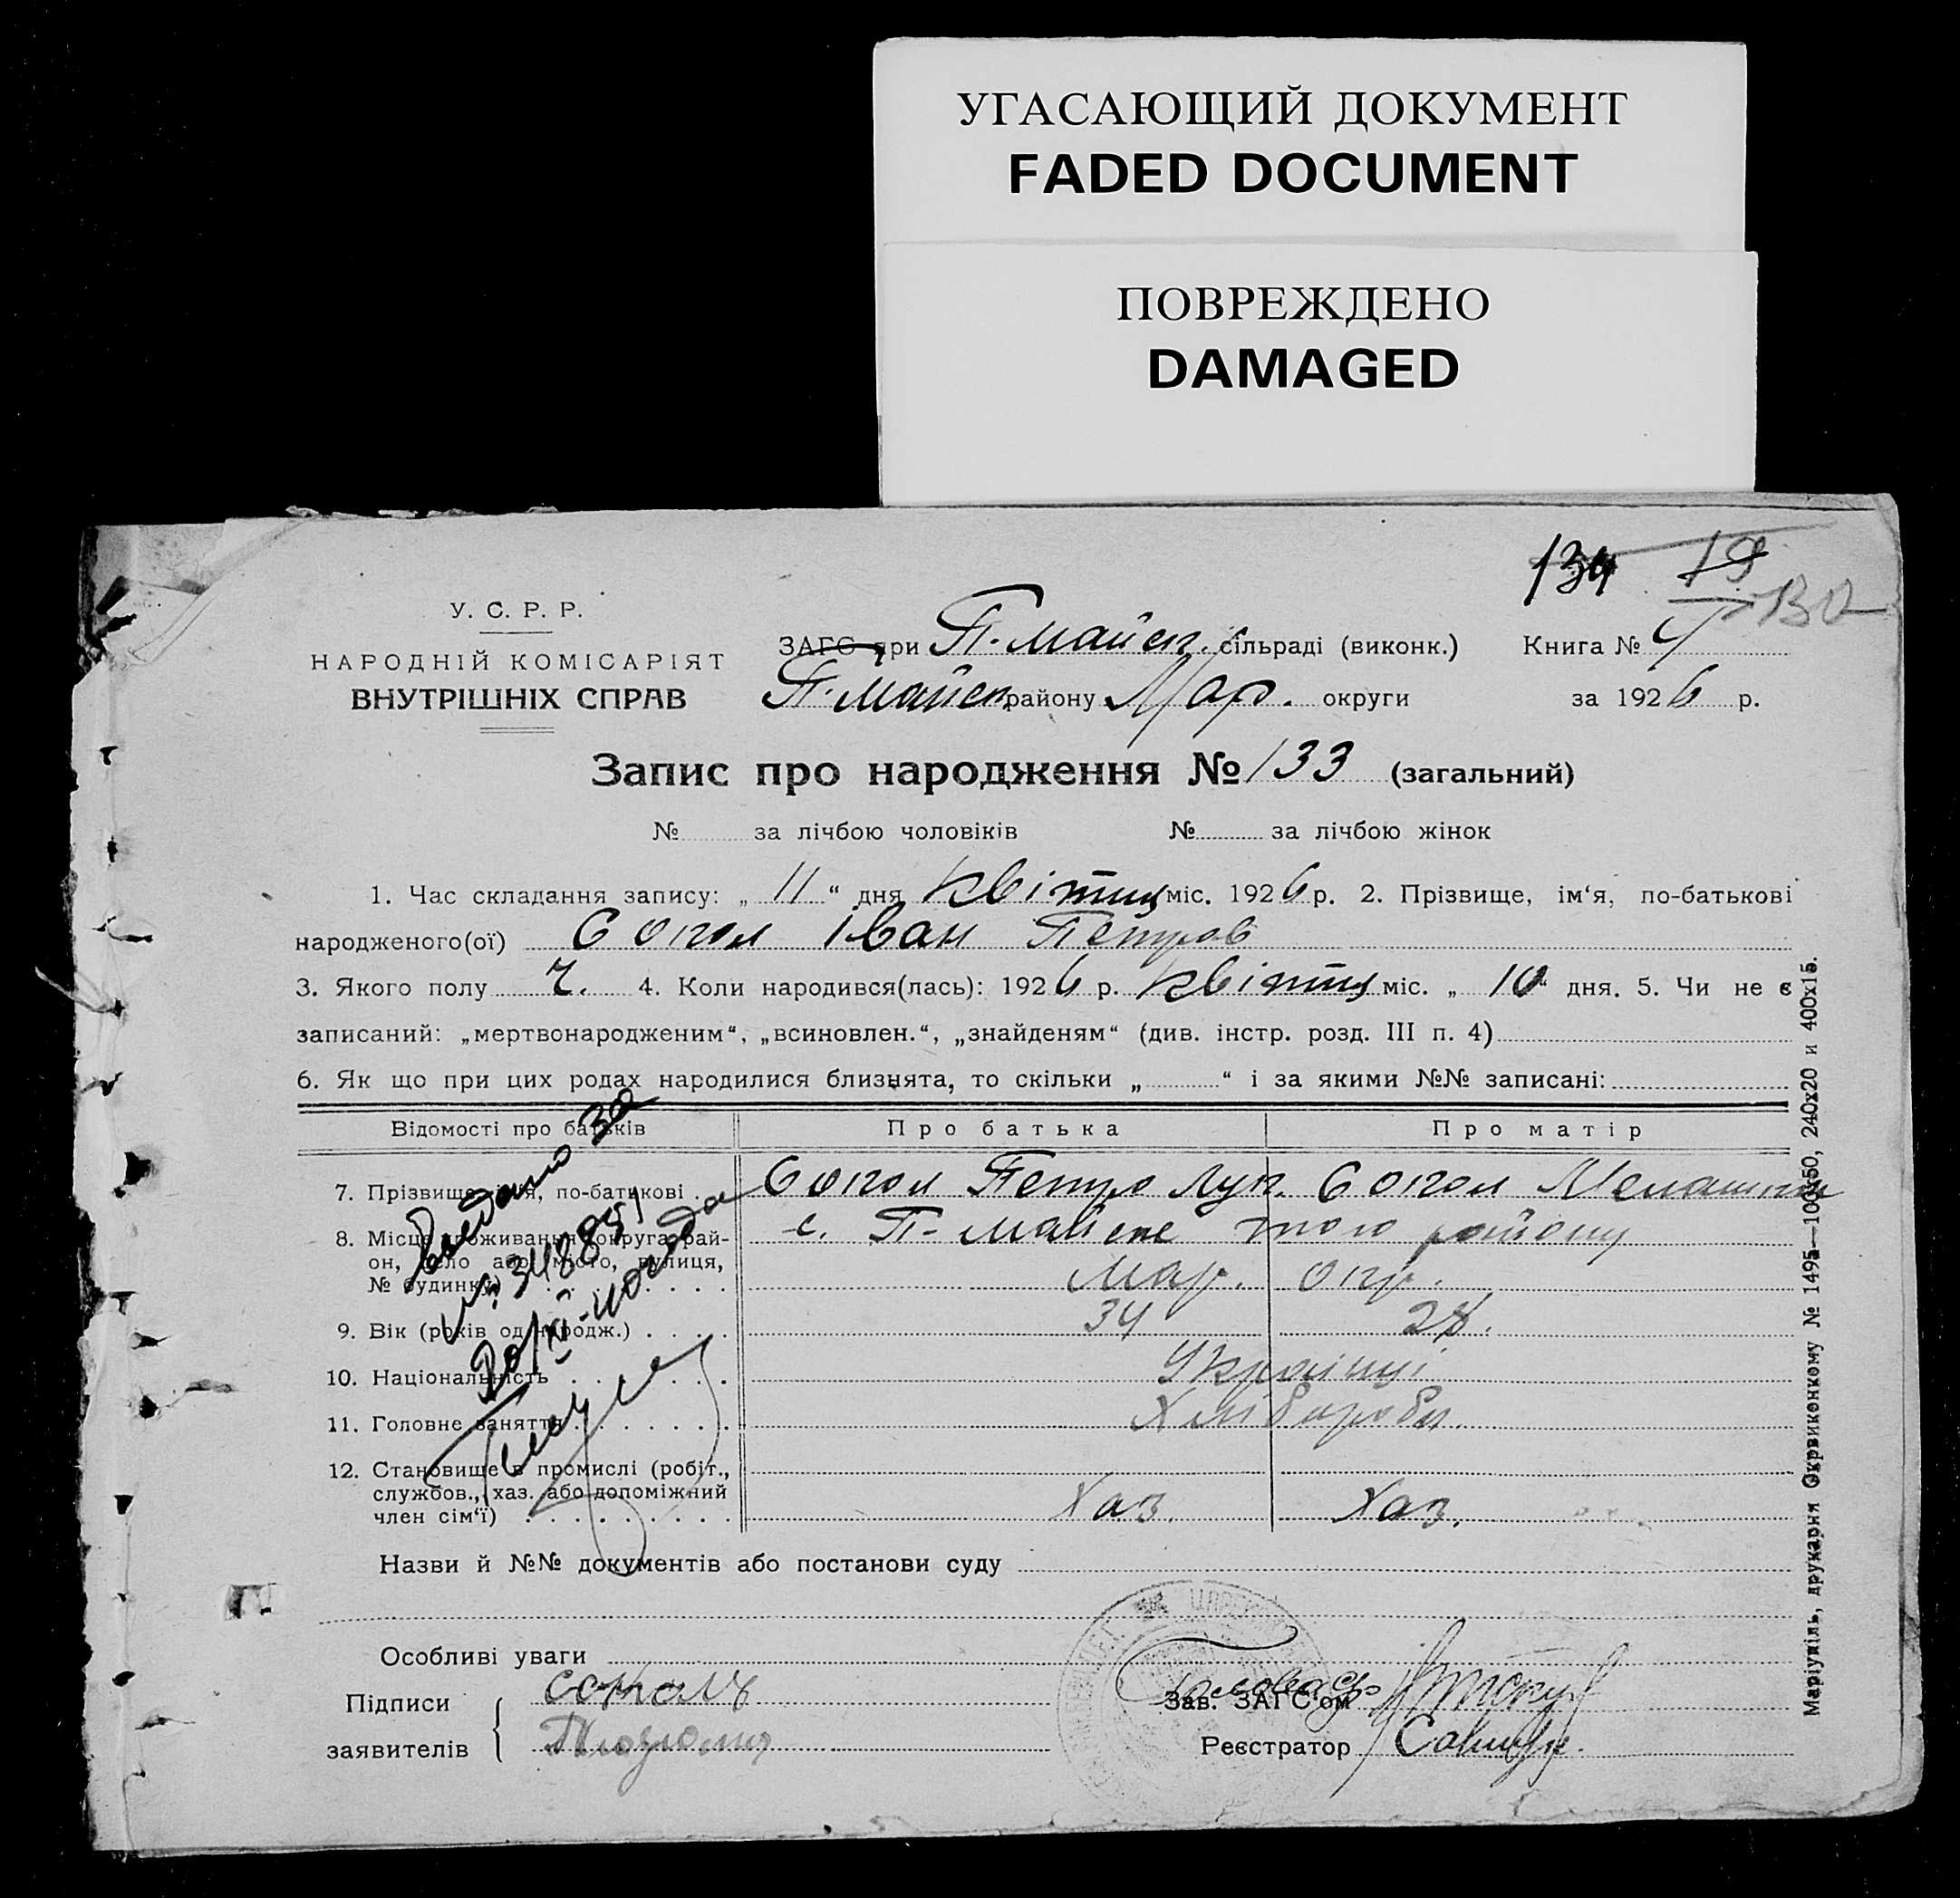 УГАСАЮЩИЙ ДОКУМЕНТ
FADED DOCUMENT
ПОВРЕЖДЕНО
DAMAGED
134 19
У. С. Р. Р.
НАРОДНІЙ КОМІСАРІЯТ
ВНУТРІШНІХ СПРАВ
ЗАГС при П-Майск. сільраді (виконк.) Книга №
П-Майск району Мар. округи за 1926 р.
Запис про народження № 133 (загальний)
№ за лічбою чоловіків № за лічбою жінок
1. Час складання запису: „ 11 “ дня Квітня міс. 1926 р. 2. Прізвище, ім‘я, по-батькові
народженого(ої) Сокол Іван Петров
3. Якого полу ч. 4. Коли народився(лась): 1926 р. Квітня міс. „ 10 “ дня. 5. Чи не є
записаний: „мертвонародженим“, „всиновлен.“, „знайденям“ (див. інстр. розд. III п. 4)
6. Як що при цих родах народилися близнята, то скільки „ “ і за якими №№ записані:
Відомості про батьків Про батька Про матір
7. Прізвище, ім‘я, по-батькові Сокол Петро Лук. Сокол Меланія
8. Місце проживання (округа, рай-
он, село або місто, вулиця,
№ будинку) с. П-Майске того району
Мар. окр.
9. Вік (років од народж.) 34 28.
10. Національність Українці
11. Головне заняття Хлібороби.
12. Становище в промислі (робіт.,
службов., хаз. або допоміжний
член сім‘ї) Хаз. Хаз.
Видано за
№ 34885
Назви й №№ документів або постанови суду
Особливі уваги
Підписи заявителів соколь
Голова Зав. ЗАГС‘ом
Реєстратор
Маріупіль, друкарня Окрвиконкому № 1495—100х50, 240х20 и 400х15.